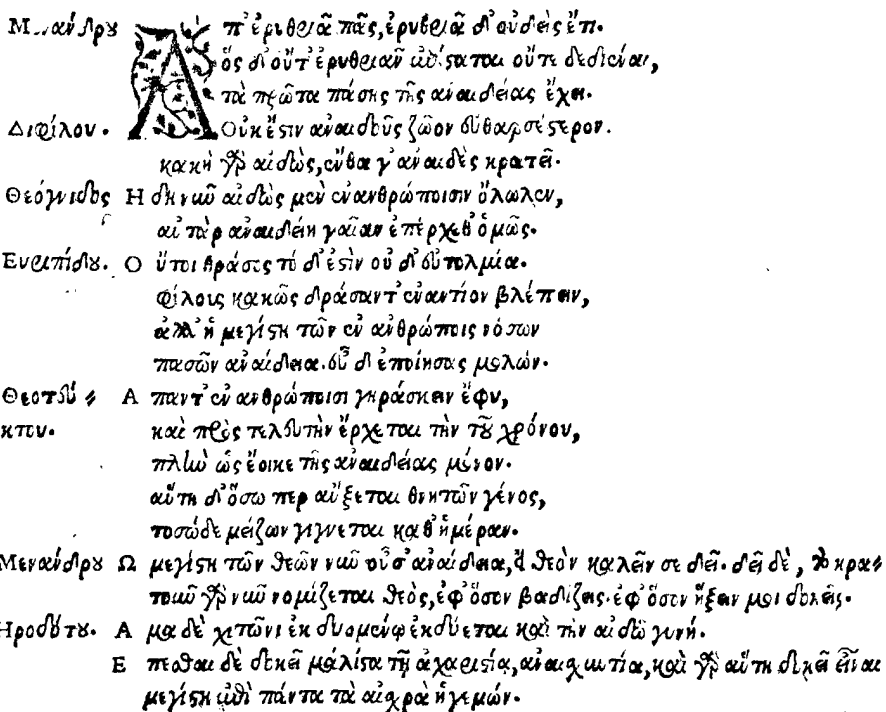 Μ...άνδρου Ἀπ' ἐρυθριᾷ πᾶς, ἐρυθριᾷ δ' οὐδεὶς ἔτι.
ὃς δ' οὔτ' ἐρυθριᾶν οὔτε δεδιέναι,
τὰ πρῶτα πάσης τῆς ἀναιδείας ἔχει.
Διφίλου. Οὐκ ἔστιν ἀναιδοῦς ζῶον εὐθαρσέστερον.
κακὴ γὰρ αἰδὼς, ἔνθα γ' ἀναιδὲς κρατεῖ.
Θεόγνιδος Η δη νῦν αἰδὼς μὲν ἐν ἀνθρώποισιν ὄλωλεν,
αὐτὰρ ἀναιδείη γαῖαν ἐπέρχεθ' ὁμῶς.
Ευριπίδου. Ο ὔτοι θράσος τό δ' ἐστὶν οὐδ' εὐτολμία.
φίλους κακῶς δράσαντ' ἐναντίον βλέπειν,
ἀλλ' ἡ μεγίστη τῶν ἐν ἀνθρώποις νόσων
πασῶν ἀναίδεια. εὖ δ' ἐποίησας μολών.
Θεοτεύ- Α παντ' ἐν ἀνθρώποισι γηράσκειν ἔφυ,
κτου. καὶ πρὸς τελευτὴν ἔρχεται τὴν τοῦ χρόνου,
πλὴν ὡς ἔοικε τῆς ἀναιδείας μόνον.
αὕτη δ' ὅσω περ αὔξεται θνητῶν γένος,
τοσῶδε μείζων γίγνεται καθ' ἡμέραν.
Μενάνδρου Ω μεγίστη τῶν θεῶν νῦν οὖσ' ἀναίδεια, εἰ θεὸν καλεῖν σε δεῖ. δεῖ δὲ, τὸ κρα-
τοῦν γὰρ νῦν νομίζεται θεὸς, ἐφ' ὅσον βαδίζεις. ἐφ' ὅσον ἥξειν μοι δοκεῖς.
Ηροδότου. Α μα δὲ χιτῶνι ἐκδυομένῳ ἐκδύεται καὶ τὴν αἰδῶ γυνή.
Ε πεσθαι δὲ δοκεῖ μάλιστα τῇ ἀχαριστίᾳ, ἀναισχυντία, καὶ γὰρ αὕτη δοκεῖ εἶναι
μεγίστη ἐπὶ πάντα τὰ αἰσχρὰ ἡγεμών.